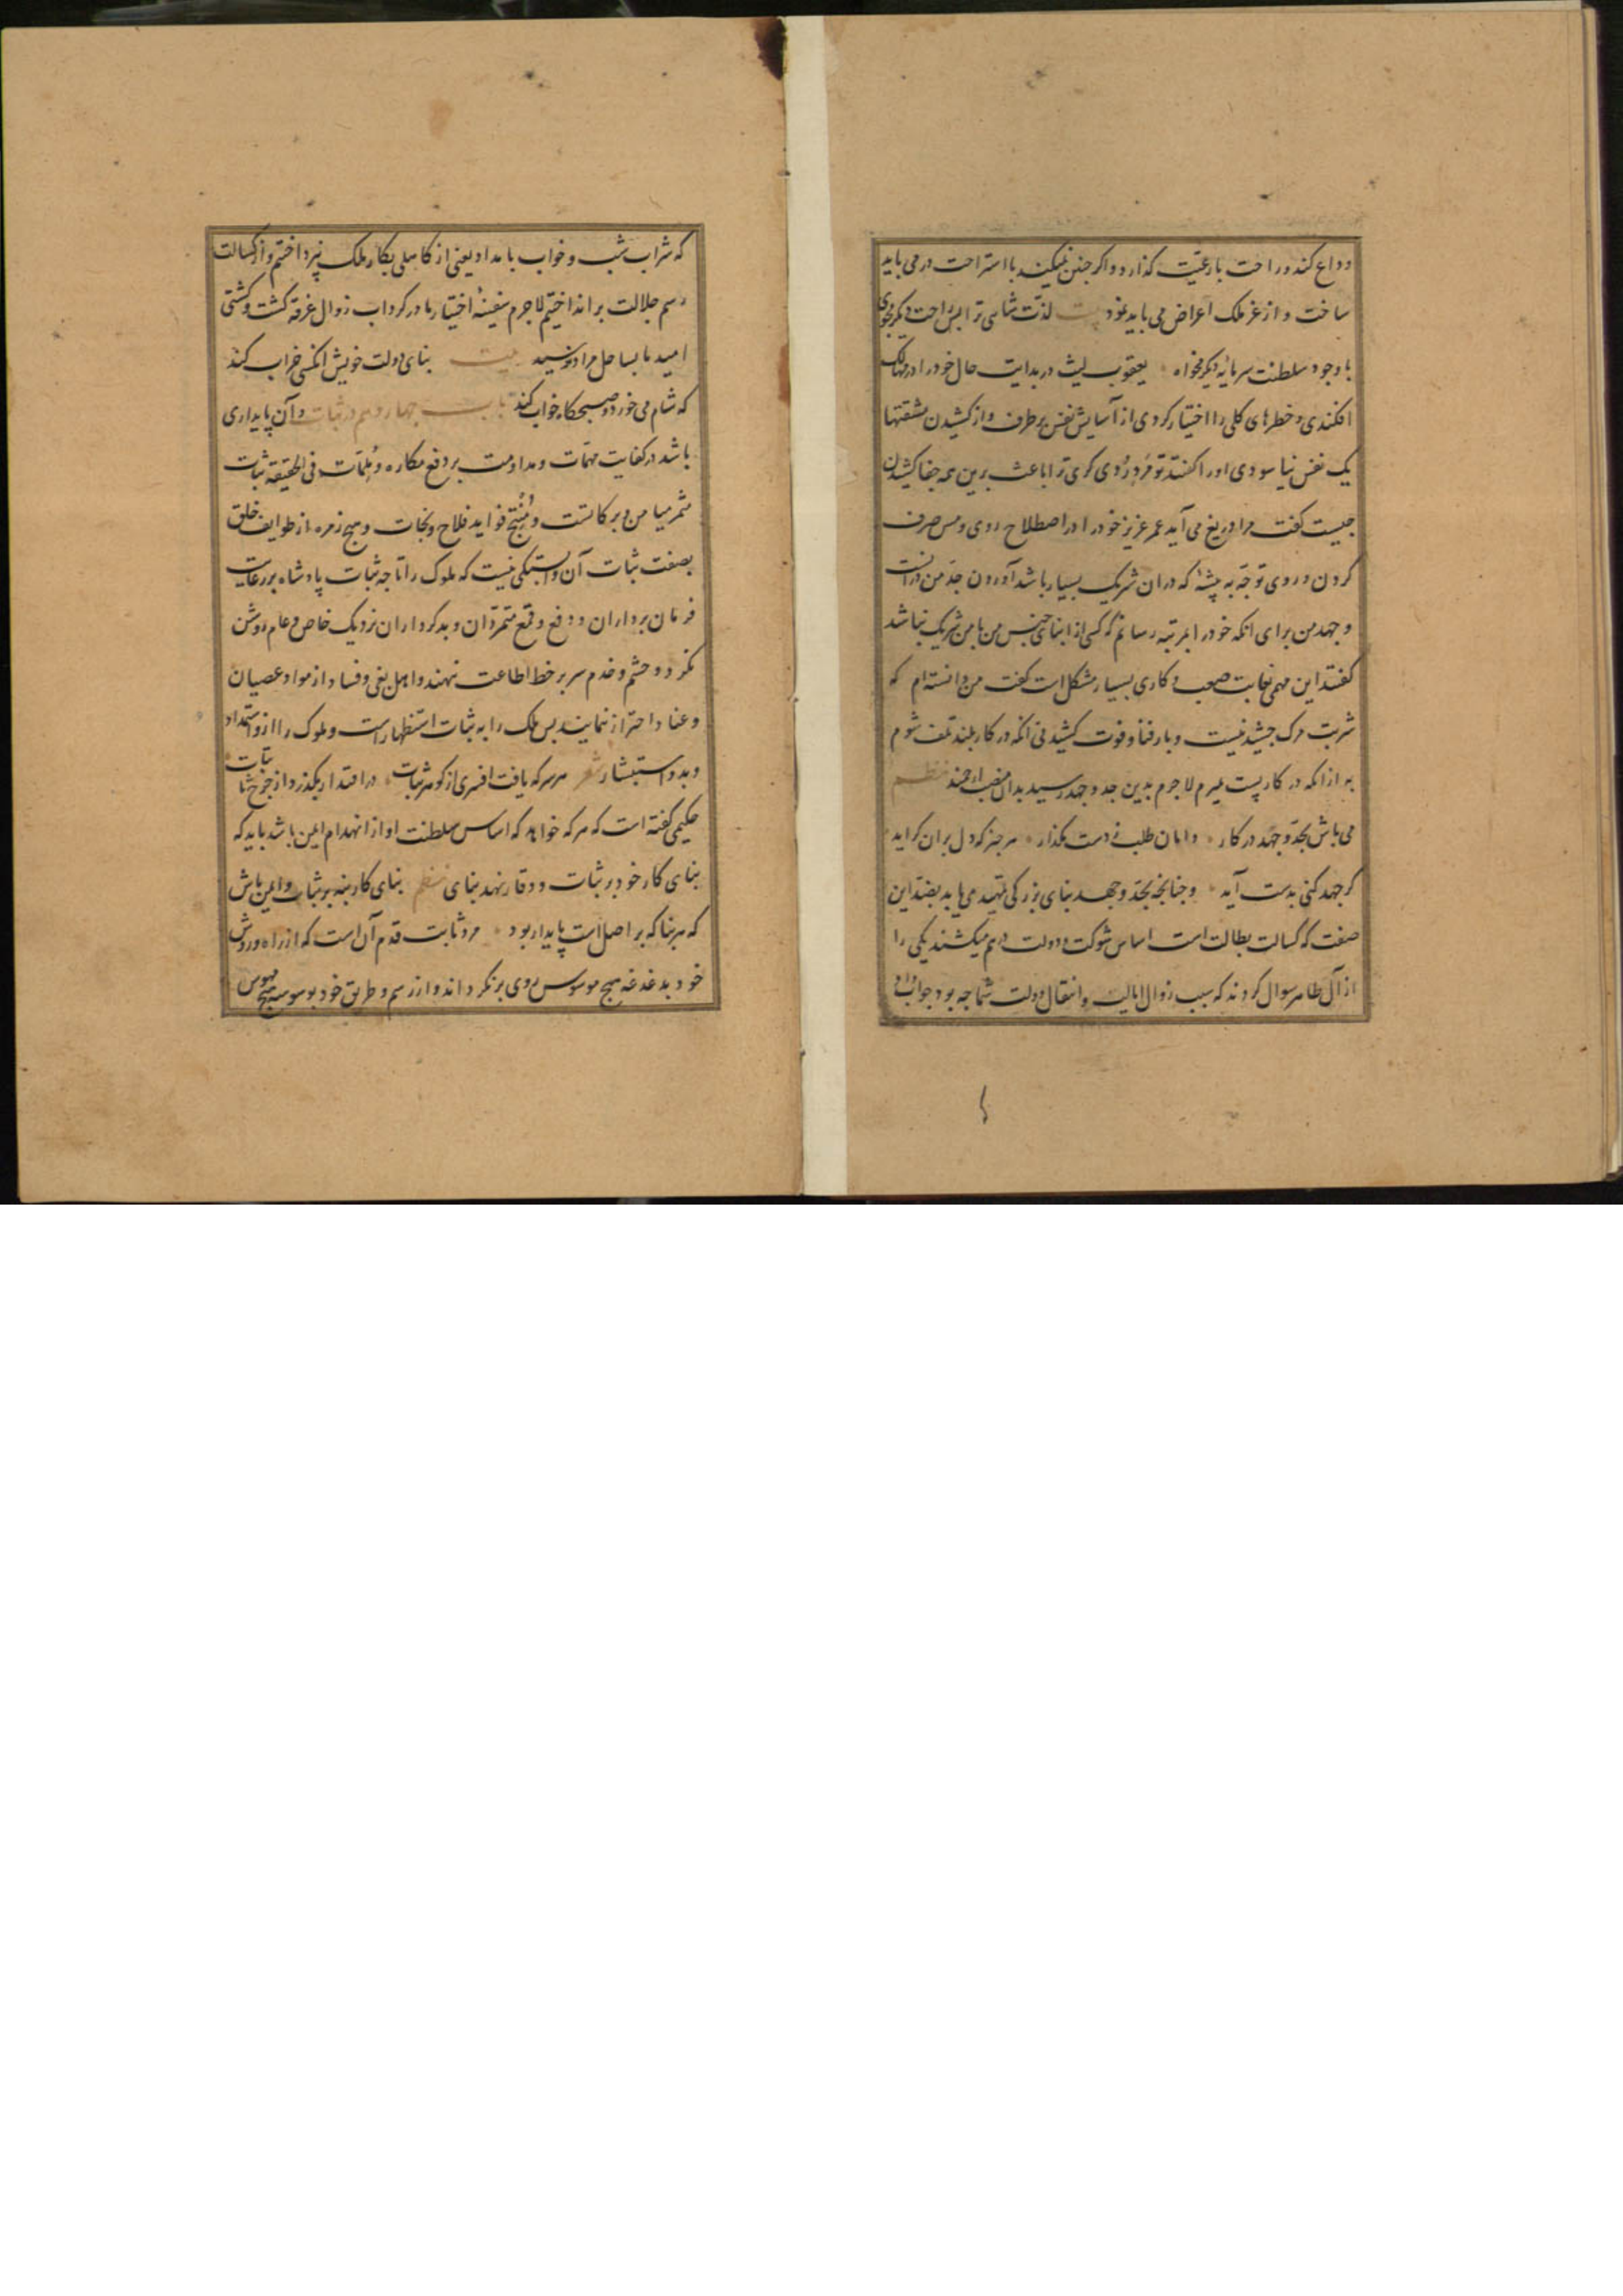 وداع کند و راحت با رعیت کذارد و اکر جنین نمیکند با استراحت در می باید
ساخت و از عز ملک اعراض می باید نمود بیت لذت شاهی ترا بس راحت دیکر مجوی
با وجود سلطنت سرمایه دیکر مخواه یعقوب لیث در بدایت حال خود را در مهالک
افکندی و خطرهای کلی را اختیار کردی از آسایش نفس بر طرف و از کشیدن مشقتها
یک نفس نیاسودی او را کفتند تو مرد رویکری ترا باعث برین همه جفا کشیدن
جیست کفت مرا دریغ می آید عمر عزیز خود را در اصطلاح روی و مس صرف
کردن و روی توجه به پیشه که دران شریک بسیار باشد آوردن جد من درانست
و جهد من برای انکه خود را بمرتبه رسانم که کسی از ابنای جنس من با من شریک نباشد
کفتند این مهمی بغایت صعب و کاری بسیار مشکل است کفت من دانسته ام که
شربت مرک جشیدنیست و بار فنا و فوت کشیدنی انکه در کار بلند تلف شوم
به ازانکه در کار پست میرم لاجرم بدین جد و جهد رسید بدان منصب ارجمند نظم
می باش بجد و جهد در کار دامان طلب ز دست مکذار هر جیز که دل بران کراید
کر جهد کنی بدست آید و جنانجه بجد و جهد بنای بزرکی تمهید می یابد بضد این
صفت که کسالت بطالت است اساس شوکت و دولت درهم میکشند یکی را
از آل طاهر سوال کردند که سبب زوال ایالت و انتقال دولت شما جه بود جواب داد
که شراب شب و خواب بامداد یعنی از کاهلی بکار ملک نپرداختیم و از کسالت
رسم جلالت بر انداختیم لاجرم سفینه اختیار ما در کرداب زوال غرقه کشت و کشتی
امید ما بساحل مراد نرسید بیت بنای دولت خویش انکسی خراب کند
که شام می خورد و صبحکاه خواب کند باب جهاردهم در ثبات و آن پایداری
باشد در کفایت مهمات و مداومت بر دفع مکاره و ملمات فی الحقیقة ثبات
مثمر میامن و برکاتست و منتج فواید فلاح و نجات و هیج زمره از طوایف خلق
بصفت ثبات آن وابستکی نیست که ملوک را تا جه ثبات پادشاه بر رعایت
فرمان برداران و دفع و قمع متمردان و بدکرداران نزدیک خاص و عام روشن
نکردد حشم و خدم سر بر خط اطاعت ننهند و اهل بغی و فساد از مواد عصیان
و عناد احتراز ننمایند بس ملک را به ثبات استظهار است و ملوک را ازو استمداد
و بدو استبشار شعر هر سر که یافت افسری از کوهر ثبات در اقتدار بکذرد از جرخ با ثبات
حکیمی کفته است که هر که خواهد که اساس سلطنت او از انهدام ایمن باشد باید که
بنای کار خود بر ثبات و وقار نهد بنای نظم بنای کار بنه بر ثبات و ایمن باش
که هر بنا که بر اصل است پایدار بود مرد ثابت قدم آن است که از راه و روش
خود بدغدغه هیج موسوس روی برنکرداند و از رسم و طریق خود بوسوسه هیج مهوس